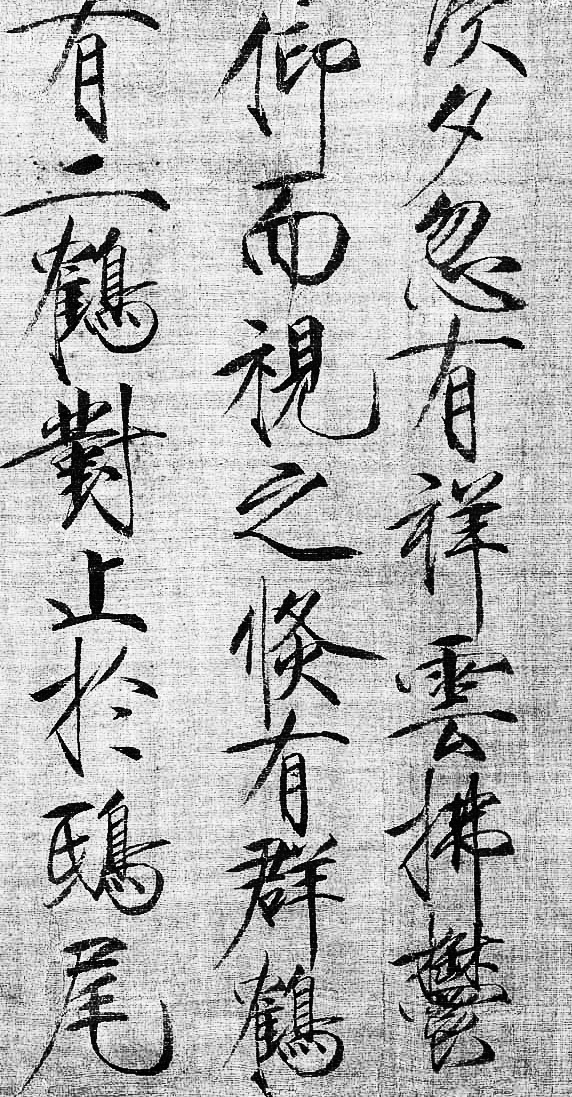 次夕忽有祥雲拂鬱
仰而視之倐有群鶴
有二鶴對止於鴟尾